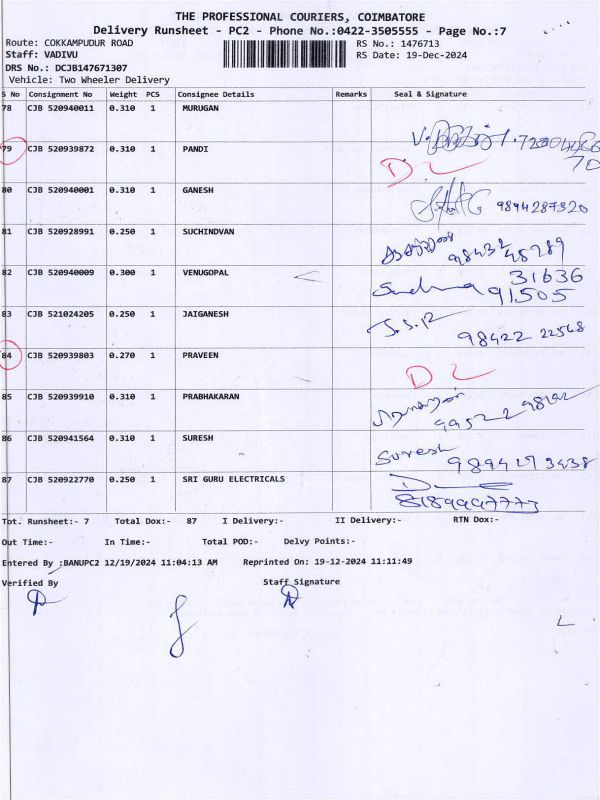 THE PROFESSIONAL COURIERS, COIMBATORE
Delivery Runsheet - PC2 - Phone No.:0422-3505555 - Page No.:7
Route: COKKAMPUDUR ROAD RS No.: 1476713
Staff: VADIVU RS Date: 19-Dec-2024
DRS No.: DCJB147671307
Vehicle: Two Wheeler Delivery
S No Consignment No Weight PCS Consignee Details Remarks Seal & Signature
78 CJB 520940011 0.310 1 MURUGAN
79 CJB 520939872 0.310 1 PANDI DL
80 CJB 520940001 0.310 1 GANESH 9894287320
81 CJB 520928991 0.250 1 SUCHINDVAN
82 CJB 520940009 0.300 1 VENUGOPAL 31636
91505
83 CJB 521024205 0.250 1 JAIGANESH 98422 22568
84 CJB 520939803 0.270 1 PRAVEEN DL
85 CJB 520939910 0.310 1 PRABHAKARAN
86 CJB 520941564 0.310 1 SURESH Suresh 9894293438
87 CJB 520922770 0.250 1 SRI GURU ELECTRICALS
Tot. Runsheet:- 7 Total Dox:- 87 I Delivery:- II Delivery:- RTN Dox:-
Out Time:- In Time:- Total POD:- Delvy Points:-
Entered By :BANUPC2 12/19/2024 11:04:13 AM Reprinted On: 19-12-2024 11:11:49
Verified By Staff Signature